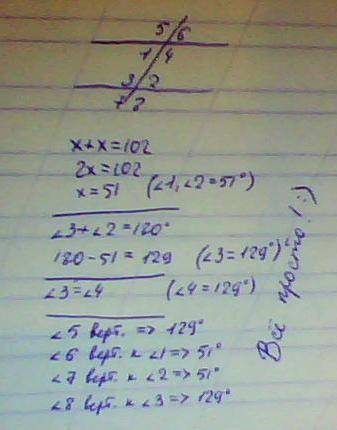 5 6
1 4
3 2
7 8
x+x=102
2x=102
x=51 (∠1,∠2=51°)
∠3+∠2=180°
180-51=129 (∠3=129°)
∠3=∠4 (∠4=129°)
∠5 верт. => 129°
∠6 верт. к ∠1=> 51°
∠7 верт. к ∠2=> 51°
∠8 верт. к ∠3=> 129°
Всё просто! :)